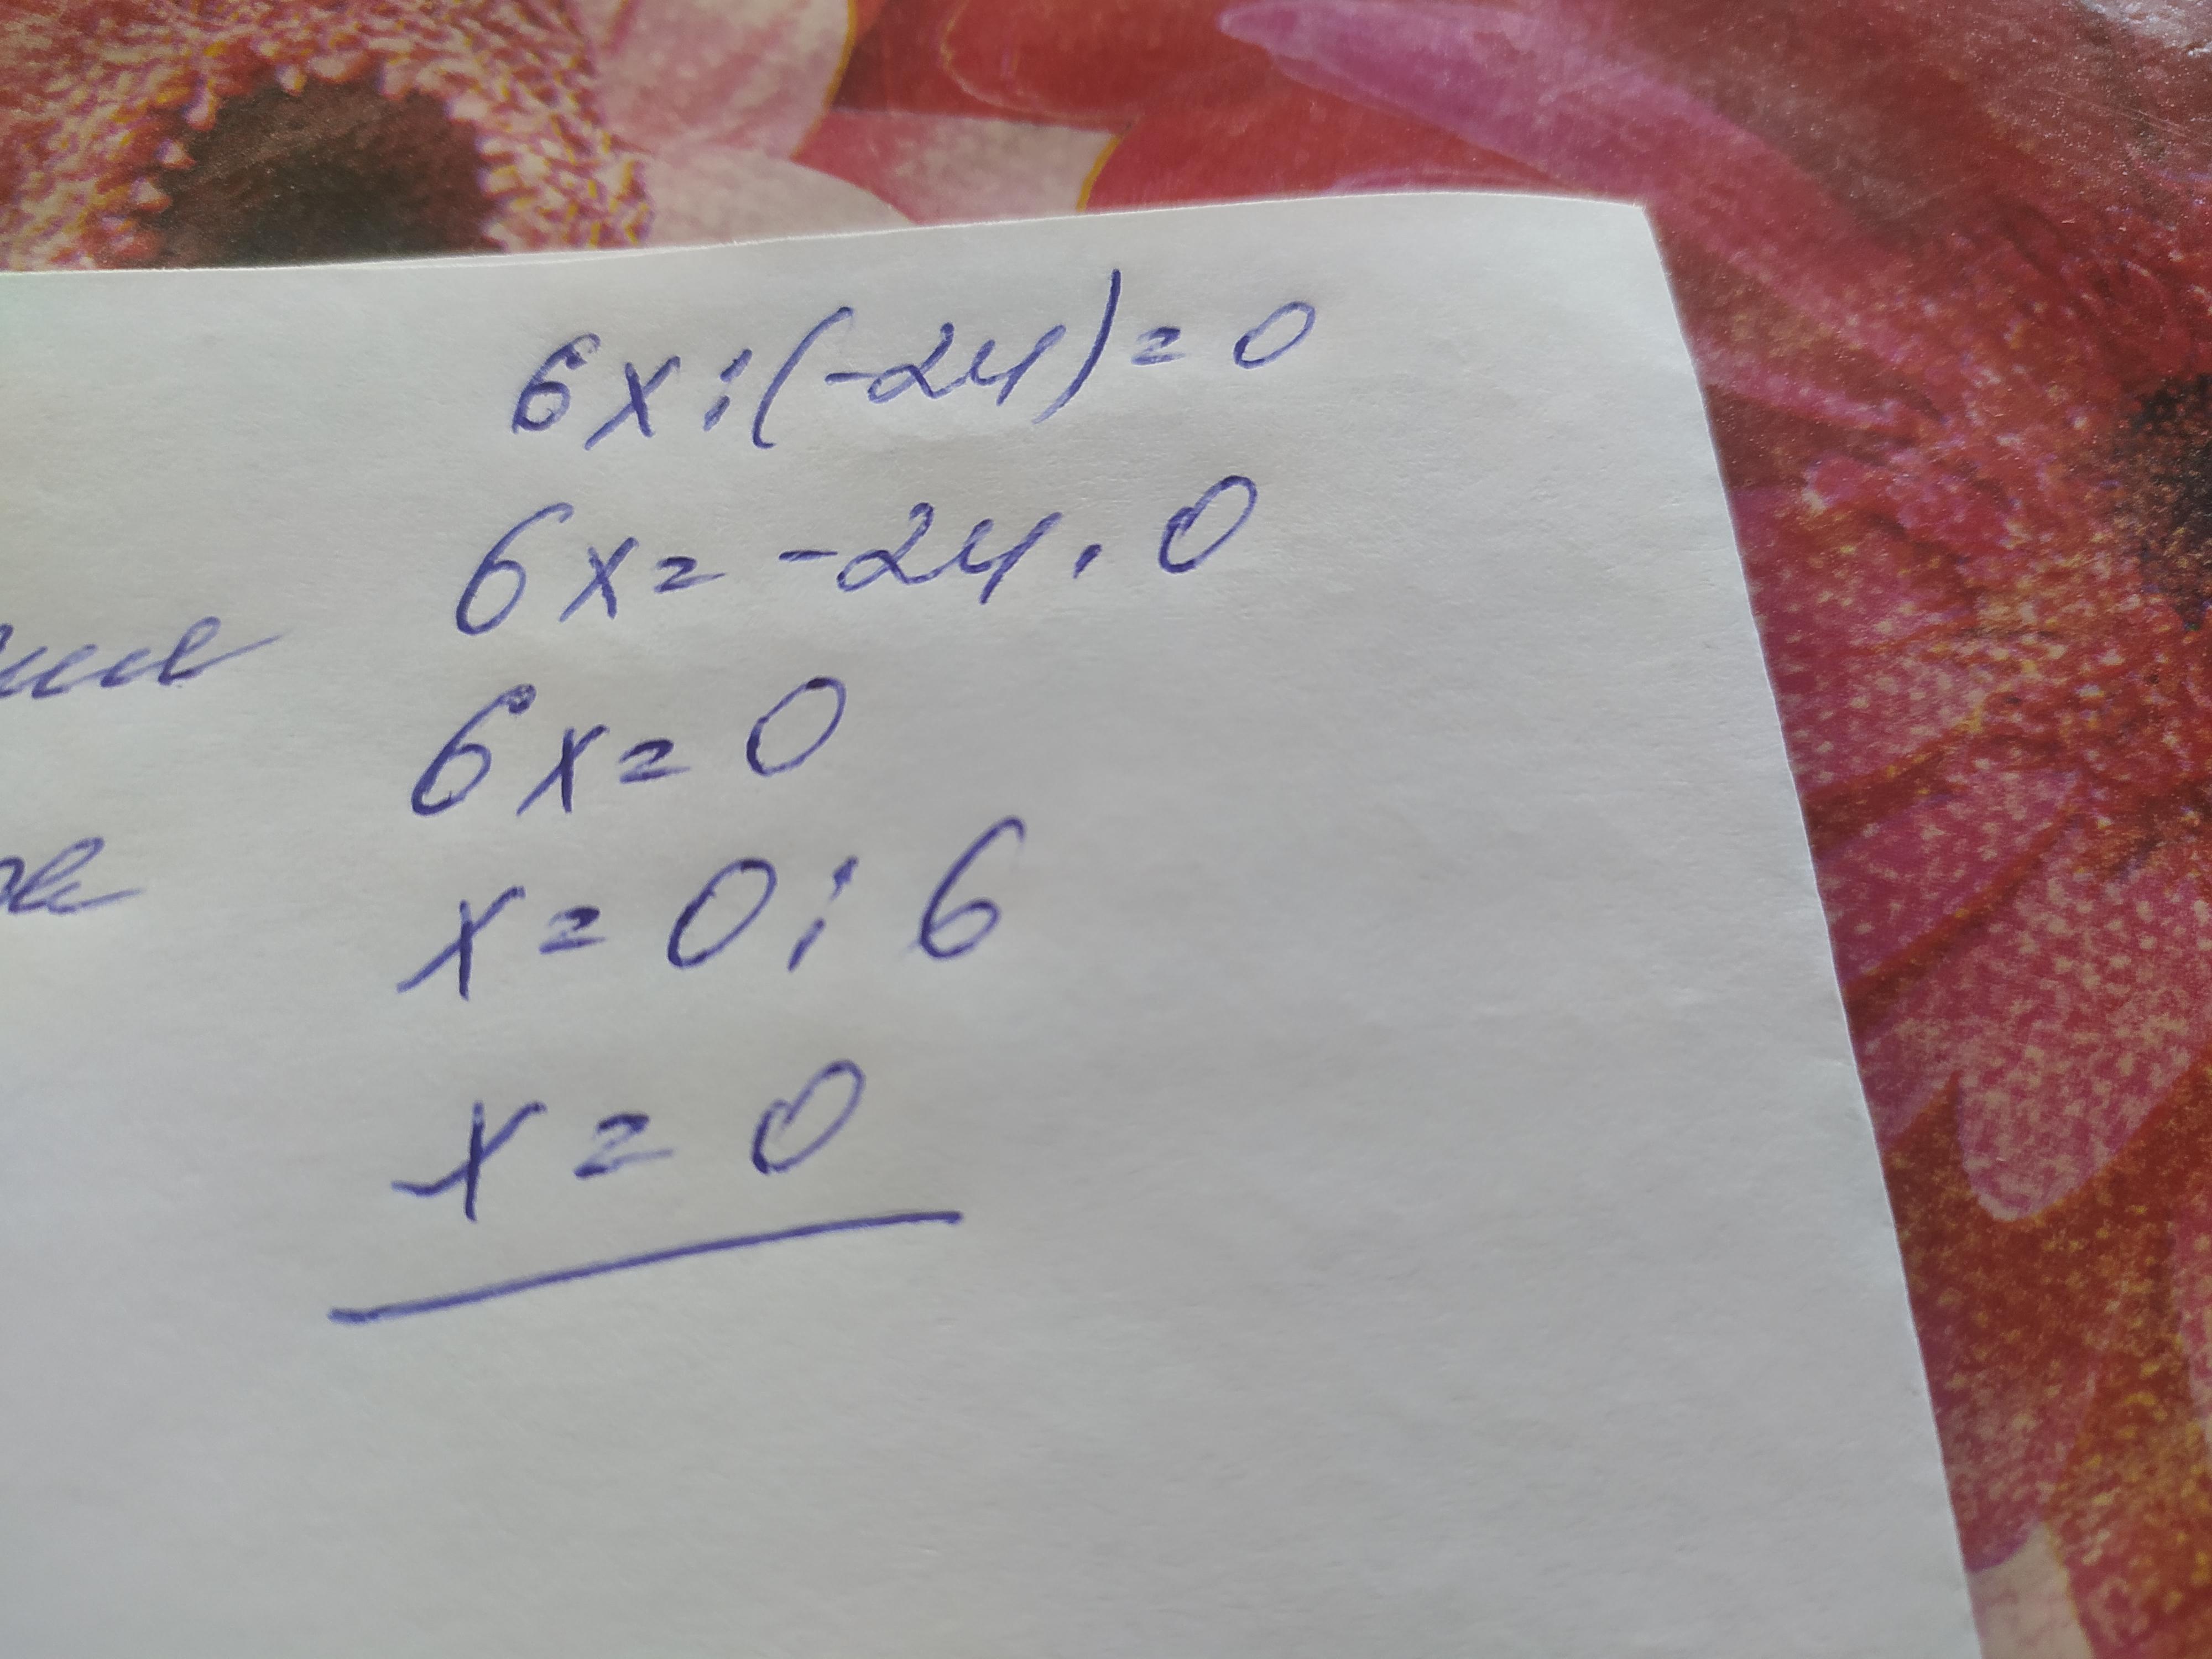 6x:(-24)=0
6x=-24·0
6x=0
x=0:6
x=0